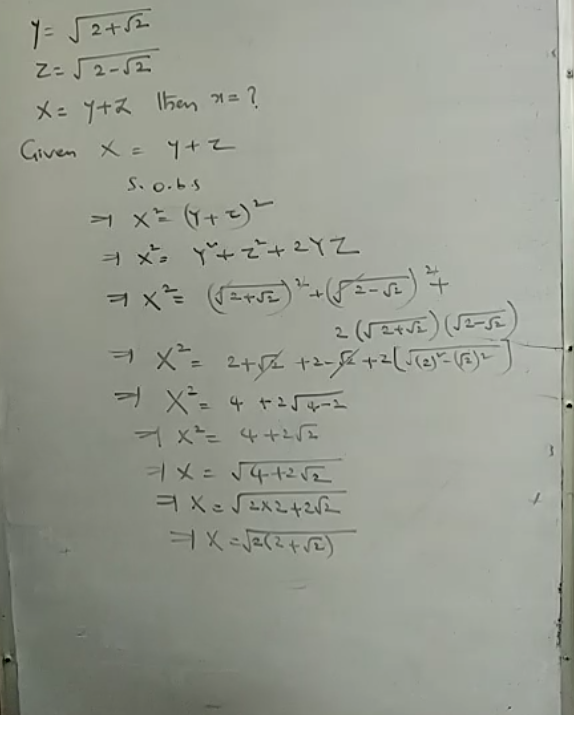 Y = √(2+√2)
Z = √(2-√2)
X = Y+Z then x = ?
Given X = Y+Z
S.o.b.s
⇒ X² = (Y+Z)²
⇒ X² = Y²+Z²+2YZ
⇒ X² = (√(2+√2))² + (√(2-√2))² +
2(√(2+√2))(√(2-√2))
⇒ X² = 2+√2 +2-√2 +2[√((2)²-(√2)²)]
⇒ X² = 4 +2√(4-2)
⇒ X² = 4+2√2
⇒ X = √(4+2√2)
⇒ X = √(2×2+2√2)
⇒ X = √(2(2+√2))